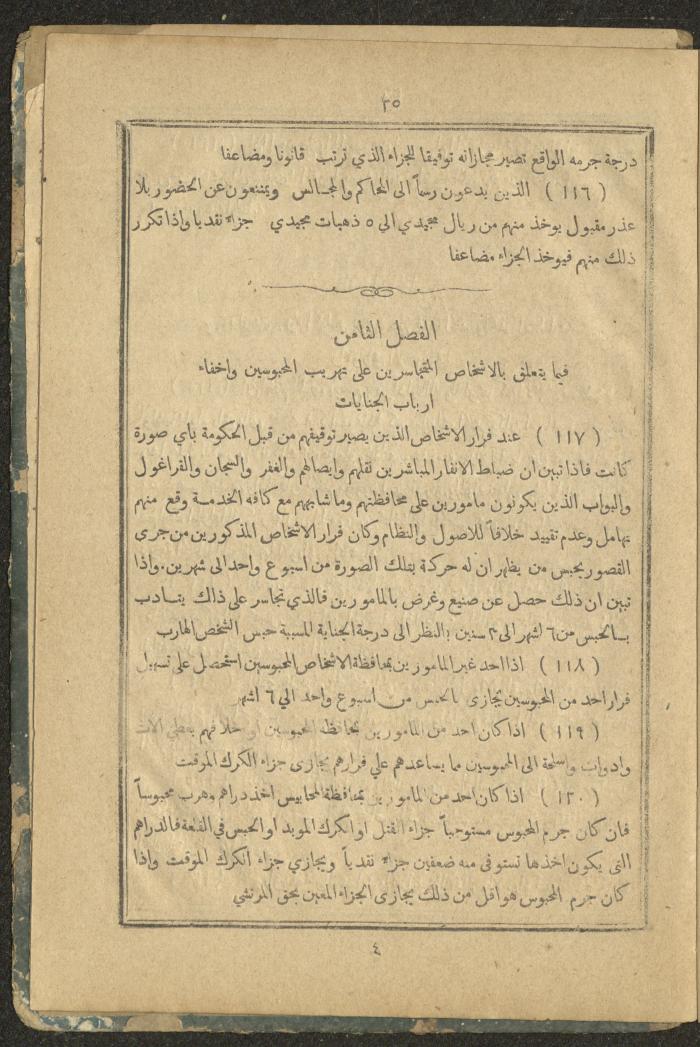 ٢٥
درجة جرمه الواقع تصير مجازاته توفيقا للجزاء الذي ترتب قانونا ومضاعفا
( ١١٦ ) الذين يدعون رسماً الى المحاكم والمجالس ويمتنعون عن الحضور بلا
عذر مقبول يوخذ منهم من ريال مجيدي الي ٥ ذهبات مجيدي جزاء نقديا واذا تكرر
ذلك منهم فيوخذ الجزاء مضاعفا
الفصل الثامن
فيما يتعلق بالاشخاص المتجاسرين على تهريب المحبوسين واخفاء
ارباب الجنايات
( ١١٧ ) عند فرار الاشخاص الذين يصير توقيفهم من قبل الحكومة باي صورة
كانت فاذا تبين ان ضباط الانفار المباشرين نقلهم وايصالهم والغفر والسجان والقراغول
والبواب الذين يكونون مامورين على محافظتهم وما شابههم مع كافه الخدمة وقع منهم
تهامل وعدم تقييد خلافاً للاصول والنظام وكان فرار الاشخاص المذكورين من جري
القصور يحبس من يظهر ان له حركة بتلك الصورة من اسبوع واحد الى شهرين. واذا
تبين ان ذلك حصل عن صنيع وغرض بالمامورين فالذي تجاسر على ذاك يتادب
بالحبس من ٦ اشهر الى ٣ سنين بالنظر الى درجة الجناية المسببة حبس الشخص الهارب
( ١١٨ ) اذا احد غير المامورين بمحافظة الاشخاص المحبوسين استحصل على تسهيل
فرار احد من المحبوسين يجازى بالحبس من اسبوع واحد الي ٦ اشهر
( ١١٩ ) اذا كان احد من المامورين بمحافظة المحبوسين او خلافهم يعطي الات
وادوات واسلحة الى المحبوسين مما يساعدهم علي فرارهم يجازى جزاء الكرك الموقت
( ١٢٠ ) اذا كان احد من المامورين بمحافظة المحابيس اخذ دراهم وهرب محبوساً
فان كان جرم المحبوس مستوجباً جزاء القتل او الكرك الموبد او الحبس في القلعة فالدراهم
التى يكون اخذها تستوفى منه ضعفين جزاء نقدياً ويجازي جزاء الكرك الموقت واذا
كان جرم المحبوس هو اقل من ذلك يجازى الجزاء المعين بحق المرتشي
٤